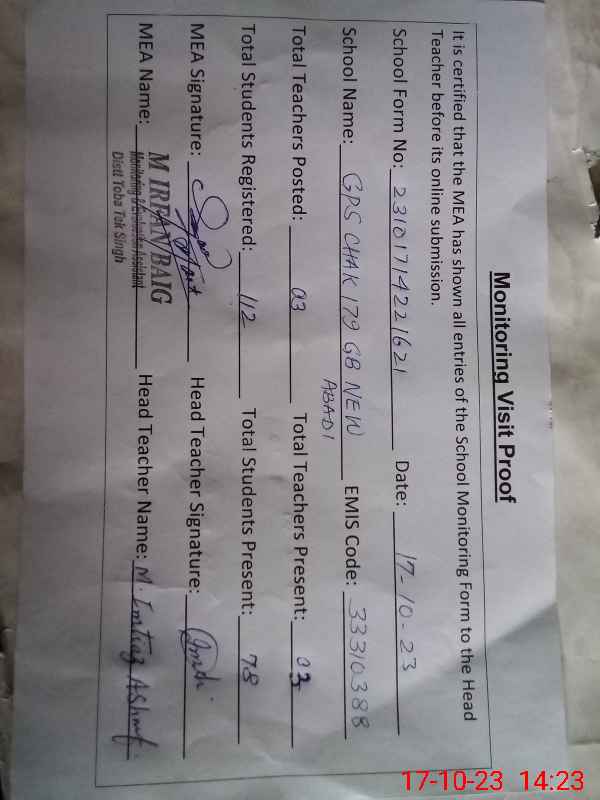 Monitoring Visit Proof
It is certified that the MEA has shown all entries of the School Monitoring Form to the Head
Teacher before its online submission.
School Form No: 23101714221621 Date: 17-10-23
School Name: GPS CHAK 179 GB NEW ABADI EMIS Code: 33310388
Total Teachers Posted: 03 Total Teachers Present: 03
Total Students Registered: 112 Total Students Present: 78
MEA Signature: Head Teacher Signature:
MEA Name: M IRFAN BAIG Head Teacher Name: M. Imtiaz Ashraf.
Monitoring & Evaluation Assistant
Distt Toba Tek Singh
17-10-23 14:23